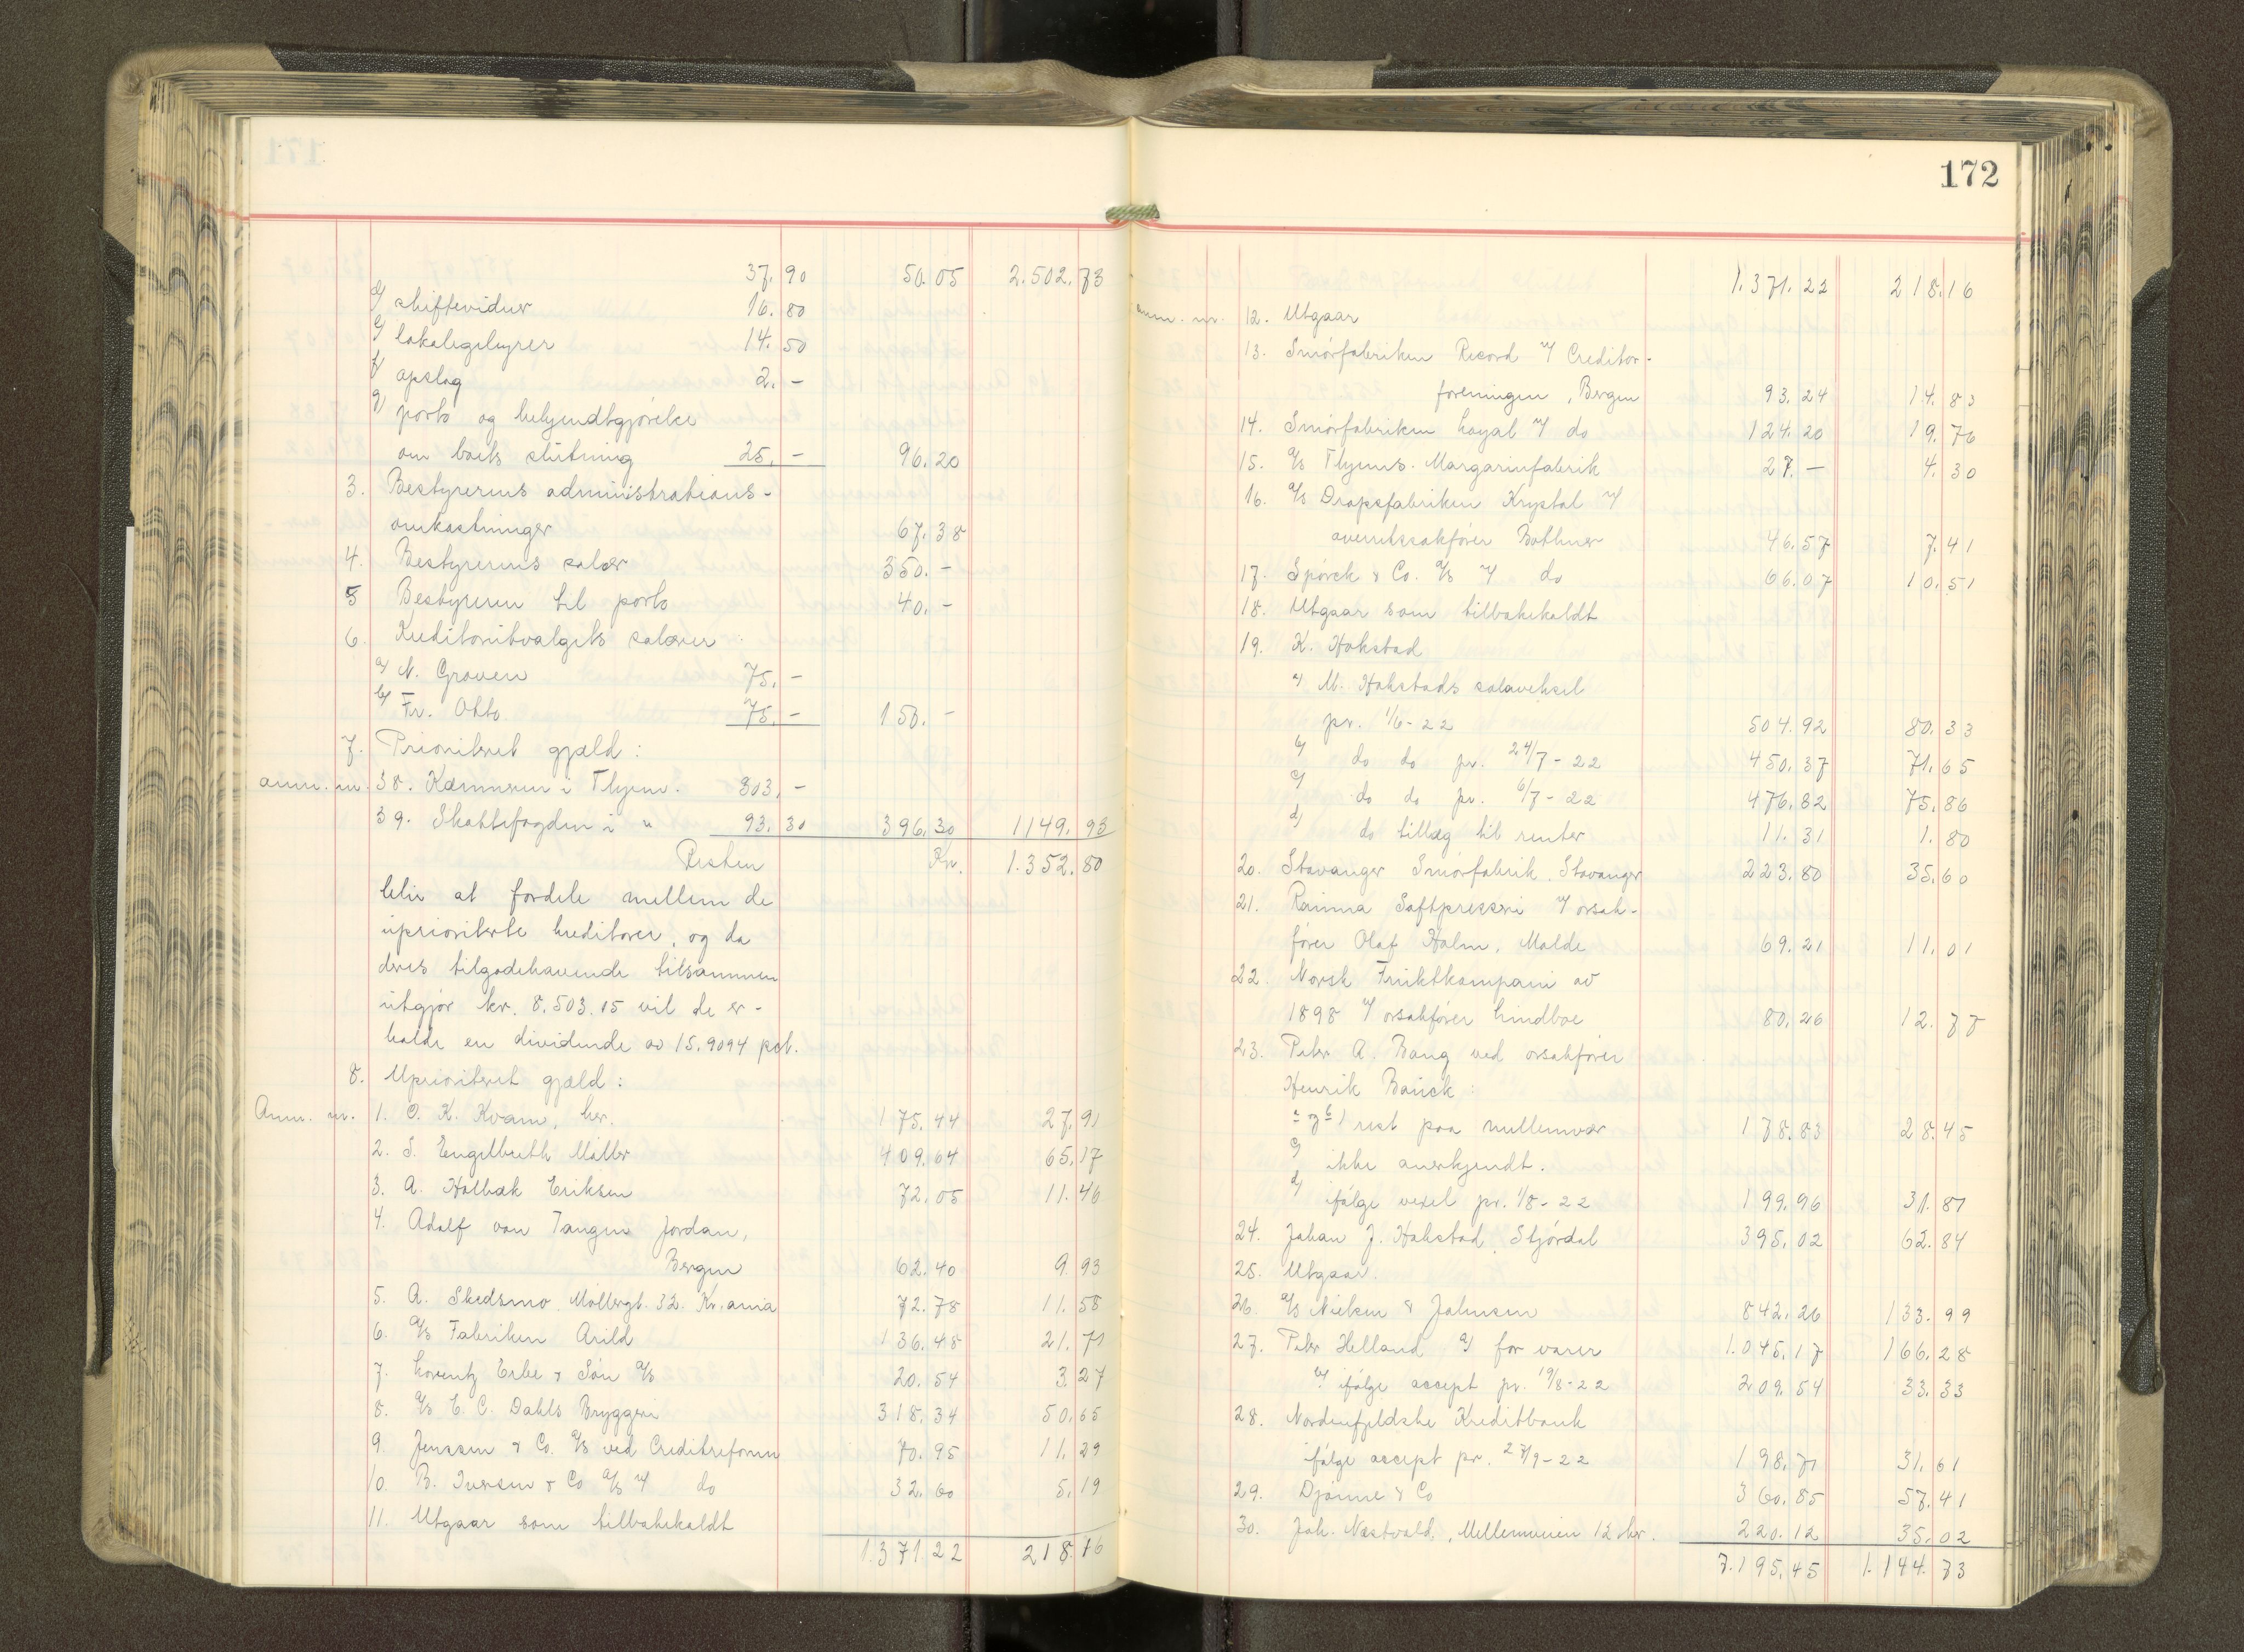 171
37.90 50.05 2.502.73
d/ skiftevidner 16.80
e/ lokalegebyrer 14.50
f/ opslag 2.-
g/ porto og bekjendtgjørelse
om boets slutning 25.- 96.20
3. Bestyrerens administrations-
omkostninger 67.38
4. Bestyrerens salær 350.-
5 Bestyreren til porto 40.-
6. Kreditorutvalgets salærer:
a/ N. Groven 75.-
b/ Fr. Otto 75.- 150.-
7. Prioritert gjæld:
anm. nr. 38. Kæmneren i Thjem. 303.-
39. Skattefogden i " 93.30 396.30 1149.93
Resten Kr. 1.352.80
blir at fordele mellem de
uprioriterte kreditorer, og da
deres tilgodehavende tilsammen
utgjør kr. 8.503.15 vil de er-
holde en dividende av 15.9094 pct.
8. Uprioritert gjæld:
Anm. nr. 1. O. K. Kvam, her. 175.44 27.91
2. S. Engelbreth Møller 409.64 65.17
3. A. Holbæk Eriksen 72.05 11.46
4. Adolf von Tangen Jordan,
Bergen 62.40 9.93
5. A. Skedsmo. Møllergt. 32. Kr.ania 72.78 11.58
6. A/S Fabriken Arild 136.48 21.71
7. Lorentz Erbe & Søn A/S 20.54 3.27
8. A/S E. C. Dahls Bryggeri 318.34 50.65
9. Jenssen & Co. A/S ved Creditreform 70.95 11.29
10. B. Iversen & Co A/S v/ do 32.60 5.19
11. Utgaar som tilbakekaldt
1.371.22 218.16
172
1.371.22 218.16
anm. nr. 12. Utgaar
13. Smørfabriken Record v/ Creditor-
foreningen, Bergen 93.24 14.83
14. Smørfabriken Loyal v/ do 124.20 19.76
15. A/S Thjems. Margarinfabrik 27.- 4.30
16. A/S Dropsfabriken Krystal v/
overretssakfører Bothner 46.57 7.41
17. Spørck & Co. A/S v/ do 66.07 10.51
18. Utgaar som tilbakekaldt
19. K. Hokstad
a/ M. Hokstads solaveksel
pr. 1/6-22 504.92 80.33
b/ do do pr. 24/7-22 450.37 71.65
c/ do do pr. 6/7-22 476.82 75.86
d/ do tillæg til renter 11.31 1.80
20. Stavanger Smørfabrik, Stavanger 223.80 35.60
21. Rauma Saftpresseri v/ orsak-
fører Olaf Holm, Molde 69.21 11.01
22. Norsk Fruktkompani av
1898 v/ orsakfører Lindboe 80.26 12.77
23. Peter A. Bang ved orsakfører
Henrik Bauck:
a og b/ rest paa mellemvær 178.83 28.45
c/ ikke anerkjendt.
d/ ifølge vexel pr. 1/8-22 199.96 31.81
24. Johan J. Hokstad, Stjørdal 395.02 62.84
25. Utgaar.
26. A/S Nielsen & Johnsen 842.26 133.99
27. Peter Helland a/ for varer 1.045.17 166.28
b/ ifølge accept pr. 19/8-22 209.54 33.33
28. Nordenfjeldske Kreditbank
ifølge accept pr. 27/9-22 198.71 31.61
29. Djønne & Co 360.85 57.41
30. Joh. Næstvold, Mellemveien 12 her. 220.12 35.02
7.195.45 1.144.73